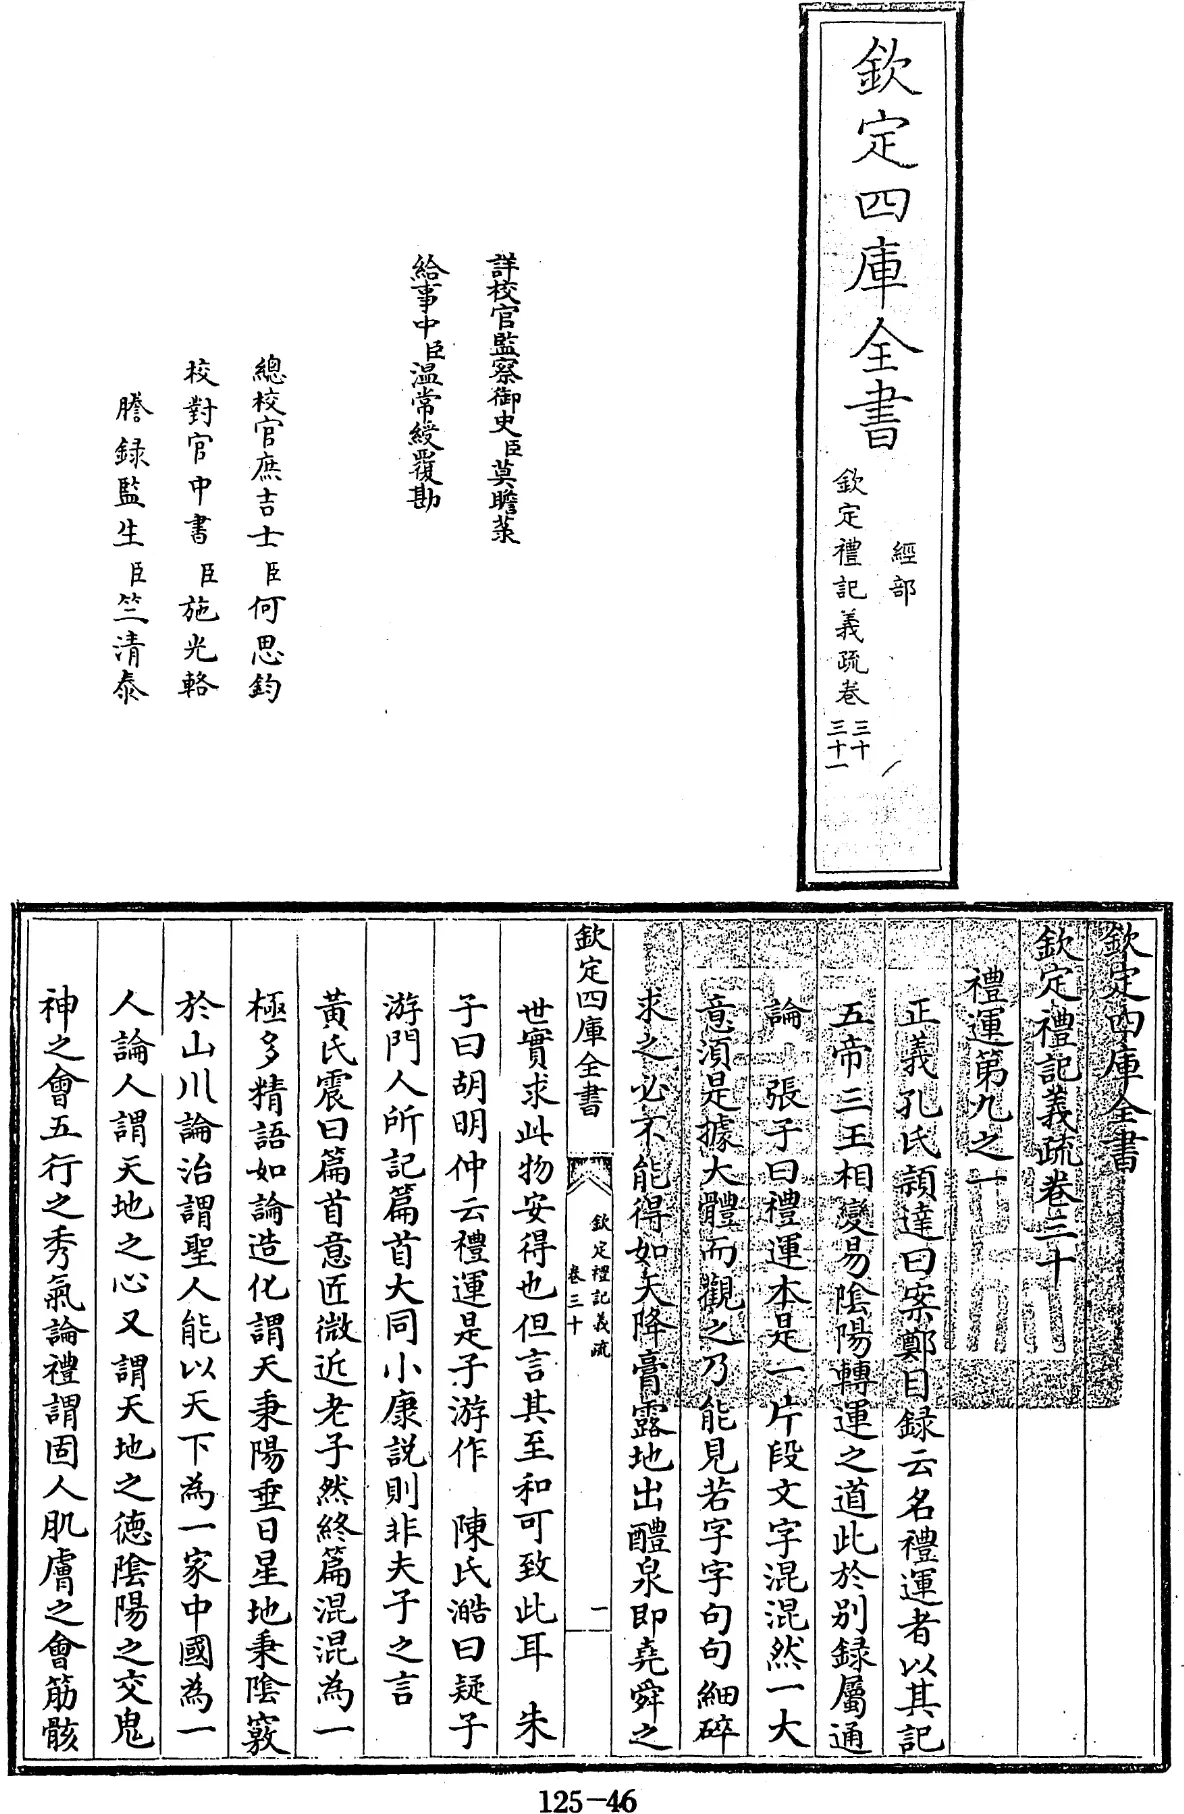 欽定四庫全書
經部
欽定禮記義疏卷三十
三十一
詳校官監察御史臣莫瞻菉
給事中臣溫常綬覆勘
總校官庶吉士臣何思鈞
校對官中書臣施光輅
謄錄監生臣竺清泰
欽定四庫全書
欽定禮記義疏卷三十
禮運第九之一
正義孔氏穎達曰案鄭目録云名禮運者以其記
五帝三王相變易陰陽轉運之道此於别録屬通
論 張子曰禮運本是一片段文字混混然一大
意須是據大體而觀之乃能見若字字句句細碎
求之必不能得如天降膏露地出醴泉即堯舜之
欽定四庫全書
欽定禮記義疏
卷三十
一
世實求此物安得也但言其至和可致此耳 朱
子曰胡明仲云禮運是子游作 陳氏澔曰疑子
游門人所記篇首大同小康説則非夫子之言
黄氏震曰篇首意匠微近老子然終篇混混為一
極多精語如論造化謂天秉陽垂日星地秉陰竅
於山川論治謂聖人能以天下為一家中國為一
人論人謂天地之心又謂天地之德陰陽之交鬼
神之會五行之秀氣論禮謂固人肌膚之會筋骸
125-46